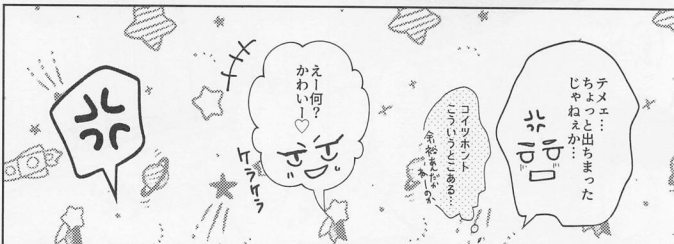 テメェ…
ちょっと出ちまった
じゃねぇか…
コイツホント
こういうとこある…
余裕あんだか
ねーのか
えー何?
かわいー♡
ケラケラ